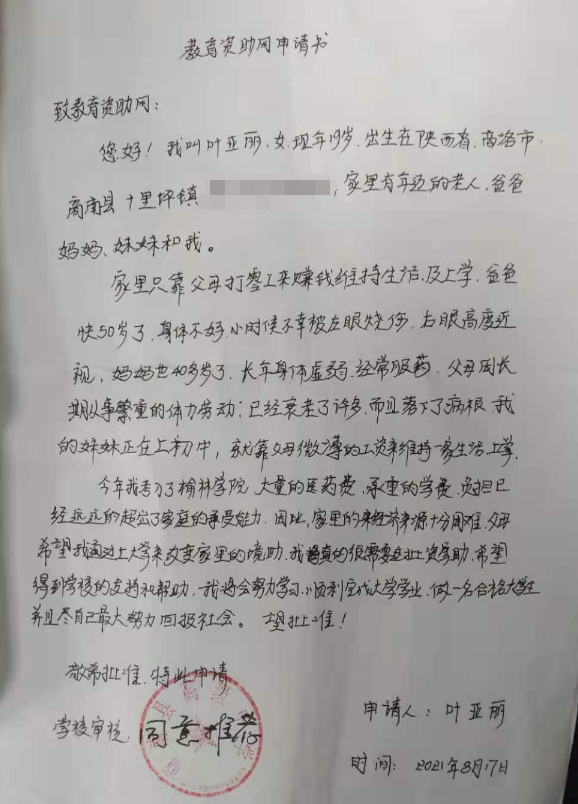 教育资助网申请书
致教育资助网：
您好！我叫叶亚丽，女，现年19岁，出生在陕西省，商洛市，
商南县十里坪镇，家里有年迈的老人，爸爸
妈妈、妹妹和我。
家里只靠父母打零工来赚钱维持生活及上学，爸爸
快50岁了，身体不好，小时侯不幸被左眼烧伤，右眼高度近
视，妈妈也40多岁了，长年身体虚弱，经常服药，父母因长
期从事繁重的体力劳动；已经衰老了许多，而且落下了病根，我
的妹妹正在上初中，就靠父母微薄的工资来维持一家生活上学，
今年我考了榆林学院，大量的医药费，承重的学费，负担已
经远远的超出了家庭的承受能力，因此，家里的经济来源十分困难，父母
希望我通过上大学来改变家里的境助，我真的很需要这批资学助，希望
得到学校的支持和帮助，我将会努力学习，顺利完成大学学业，做一名合格大学生
并且尽自己最大努力回报社会。望批准！
敬希批准，特此申请
学校审核：同意推荐
申请人：叶亚丽
时间：2021年8月17日